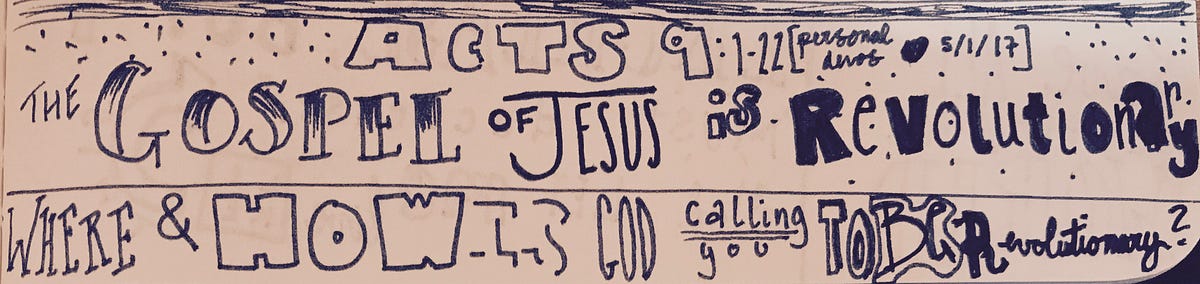 ACTS 9:1-22 [personal devos ♥ 5/1/17]
THE GOSPEL OF JESUS is Revolutionary
WHERE & HOW IS GOD calling you TO BE Revolutionary?